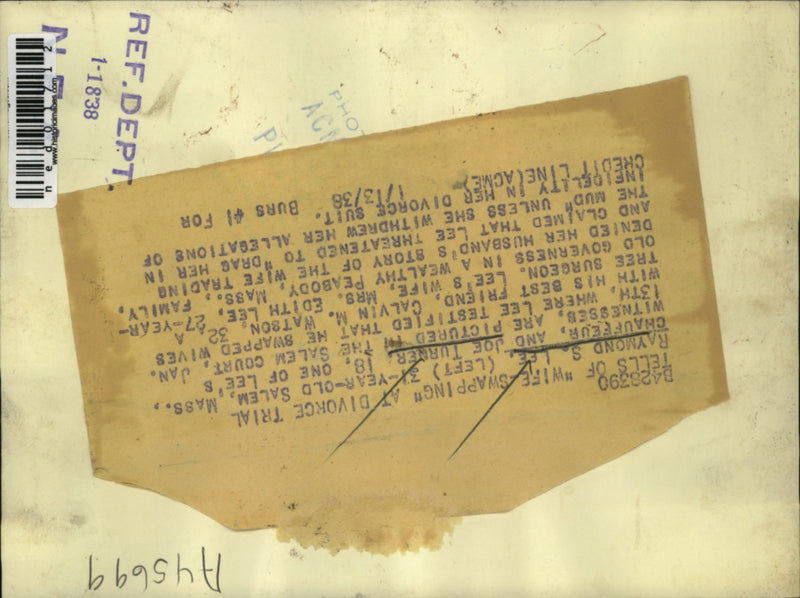 B428390
TELLS OF "WIFE-SWAPPING" AT DIVORCE TRIAL
RAYMOND S. LEE (LEFT) 31-YEAR-OLD SALEM, MASS.,
CHAUFFEUR, AND JOE TURNER, 18, ONE OF LEE'S
WITNESSES, ARE PICTURED IN THE SALEM COURT, JAN.
13TH, WHERE LEE TESTIFIED THAT HE SWAPPED WIVES
WITH HIS BEST FRIEND, CALVIN M. WATSON, 32, A
TREE SURGEON. LEE'S WIFE, MRS. EDITH LEE, 27-YEAR-
OLD GOVERNESS IN A WEALTHY PEABODY, MASS., FAMILY,
DENIED HER HUSBAND'S STORY OF THE WIFE TRADING
AND CLAIMED THAT LEE THREATENED TO "DRAG HER IN
THE MUD" UNLESS SHE WITHDREW HER ALLEGATIONS OF
INFIDELITY IN HER DIVORCE SUIT.
CREDIT LINE(ACME) 1/13/38 BURS #1 FOR
REF. DEPT.
1-1838
A45699
www.historicimages.com